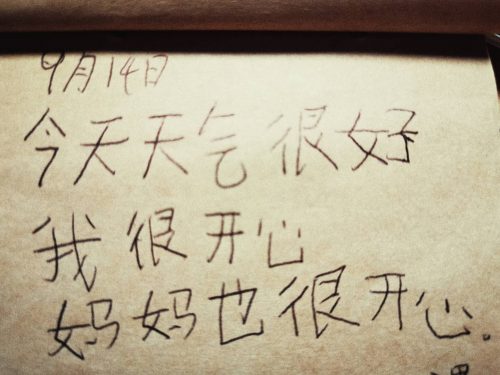 9月14日
今天天气很好
我很开心
妈妈也很开心.